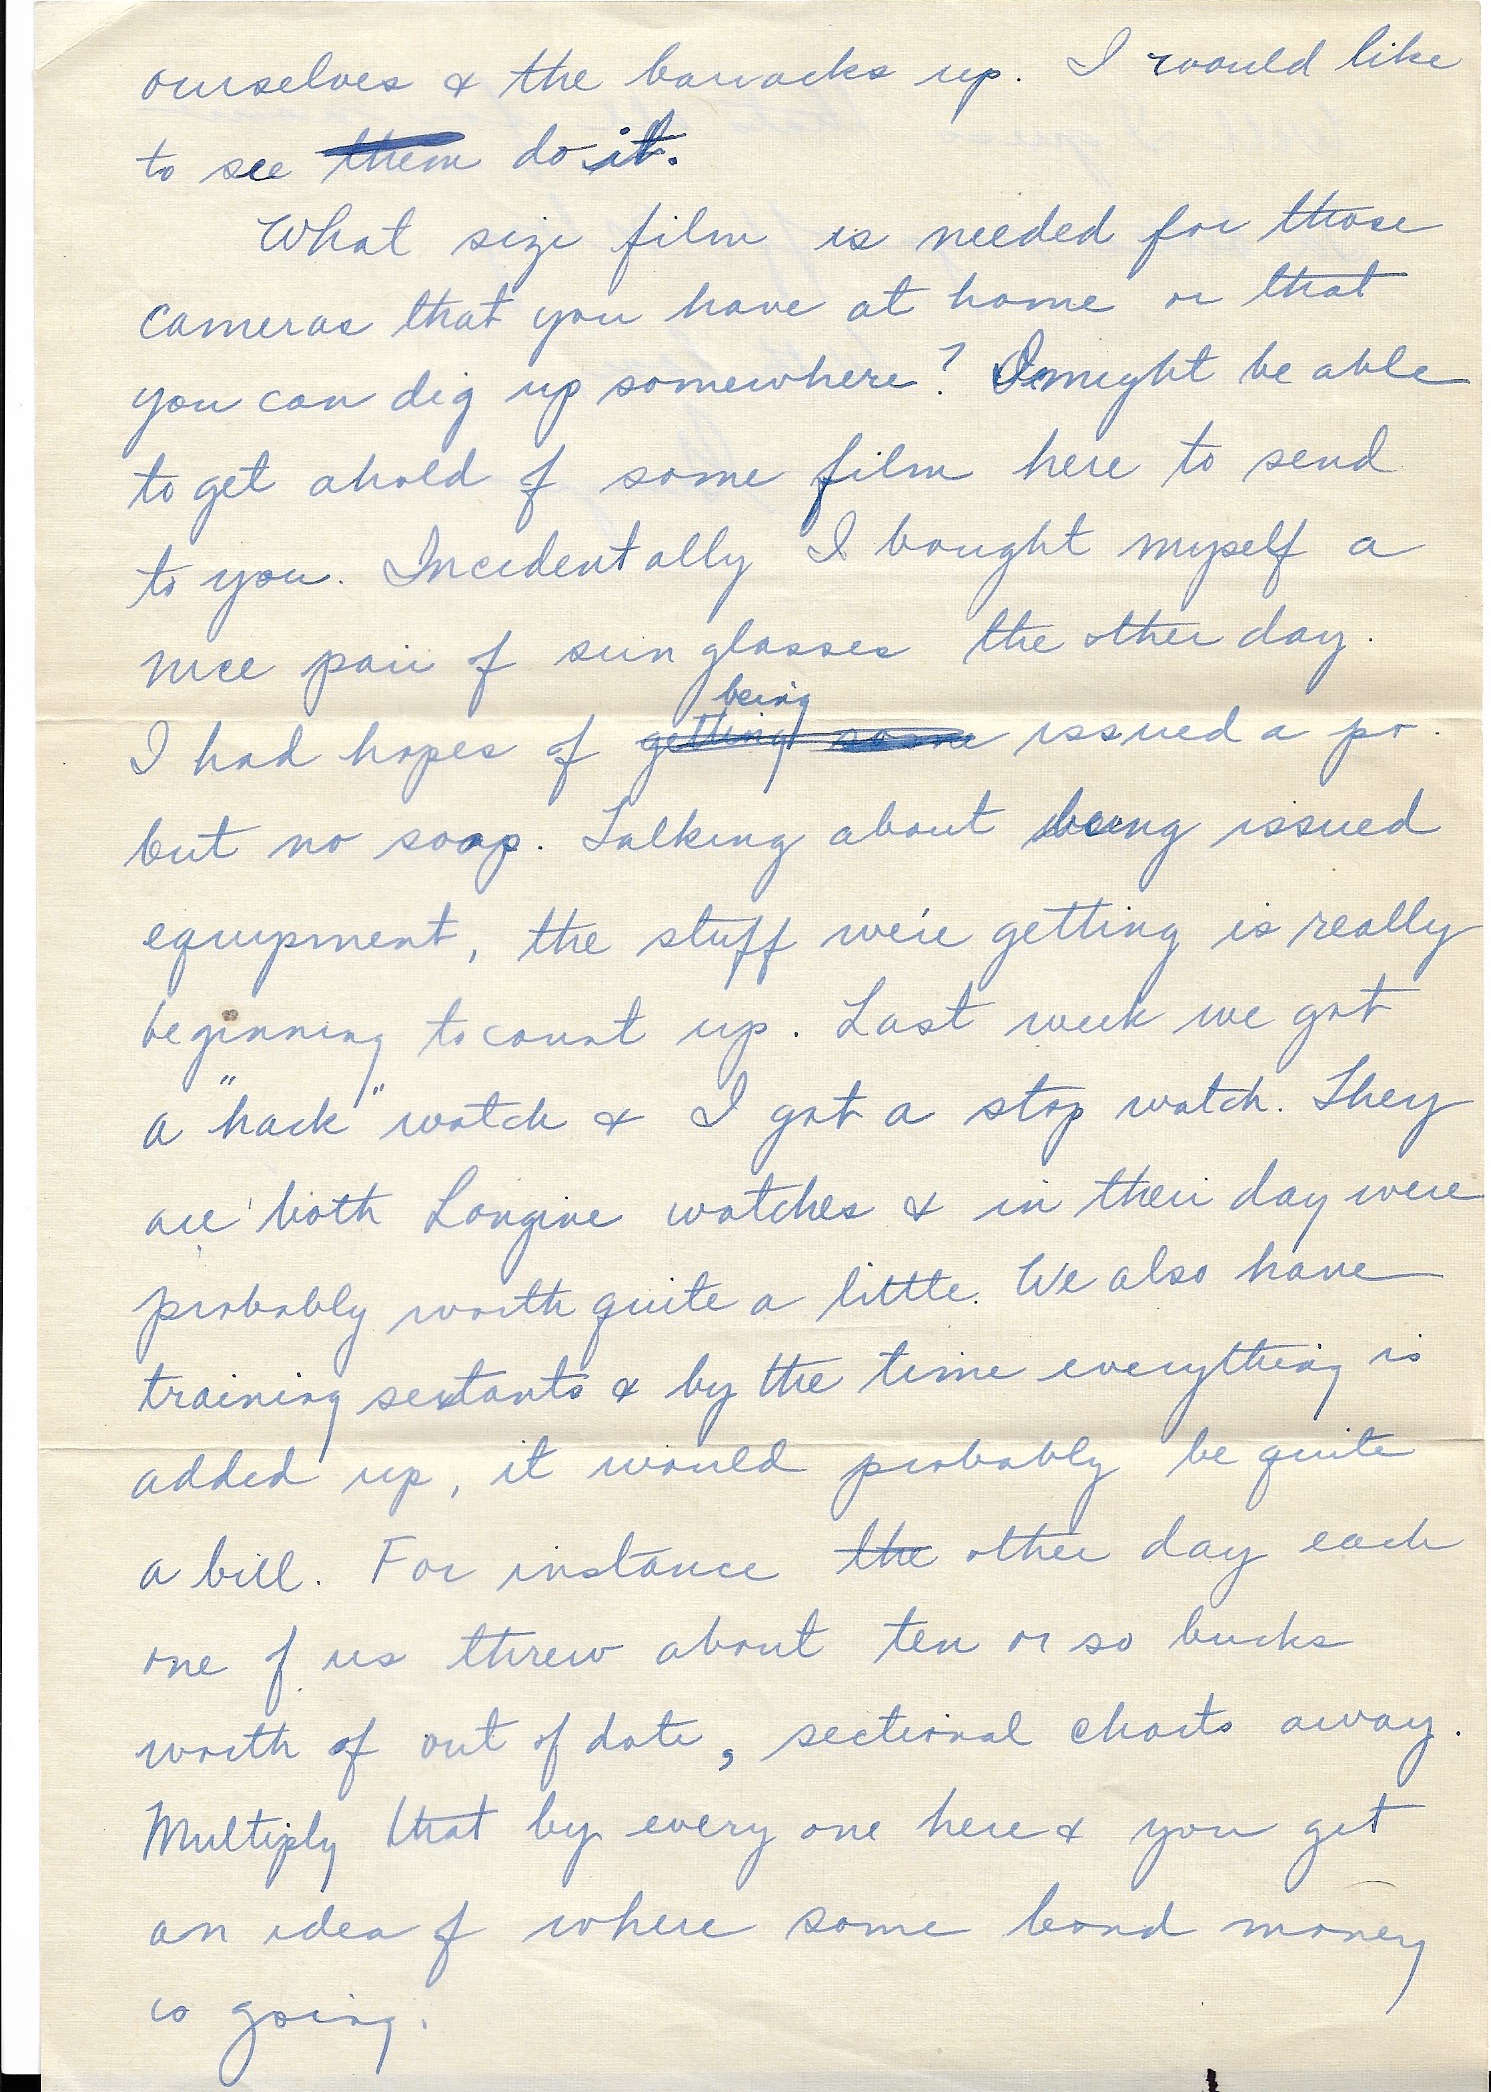 ourselves & the barracks up. I would like
to see them do it.
What size film is needed for those
cameras that you have at home or that
you can dig up somewhere? I might be able
to get ahold of some film here to send
to you. Incidentally I bought myself a
nice pair of sun glasses the other day.
being
I had hopes of getting some issued a pr.
but no soap. Talking about being issued
equipment, the stuff we're getting is really
beginning to count up. Last week we got
a "hack" watch & I got a stop watch. They
are both Longine watches & in their day were
probably worth quite a little. We also have
training sextants & by the time everything is
added up, it would probably be quite
a bill. For instance the other day each
one of us threw about ten or so bucks
worth of out of date, sectional charts away.
Multiply that by every one here & you get
an idea of where some bond money
is going.